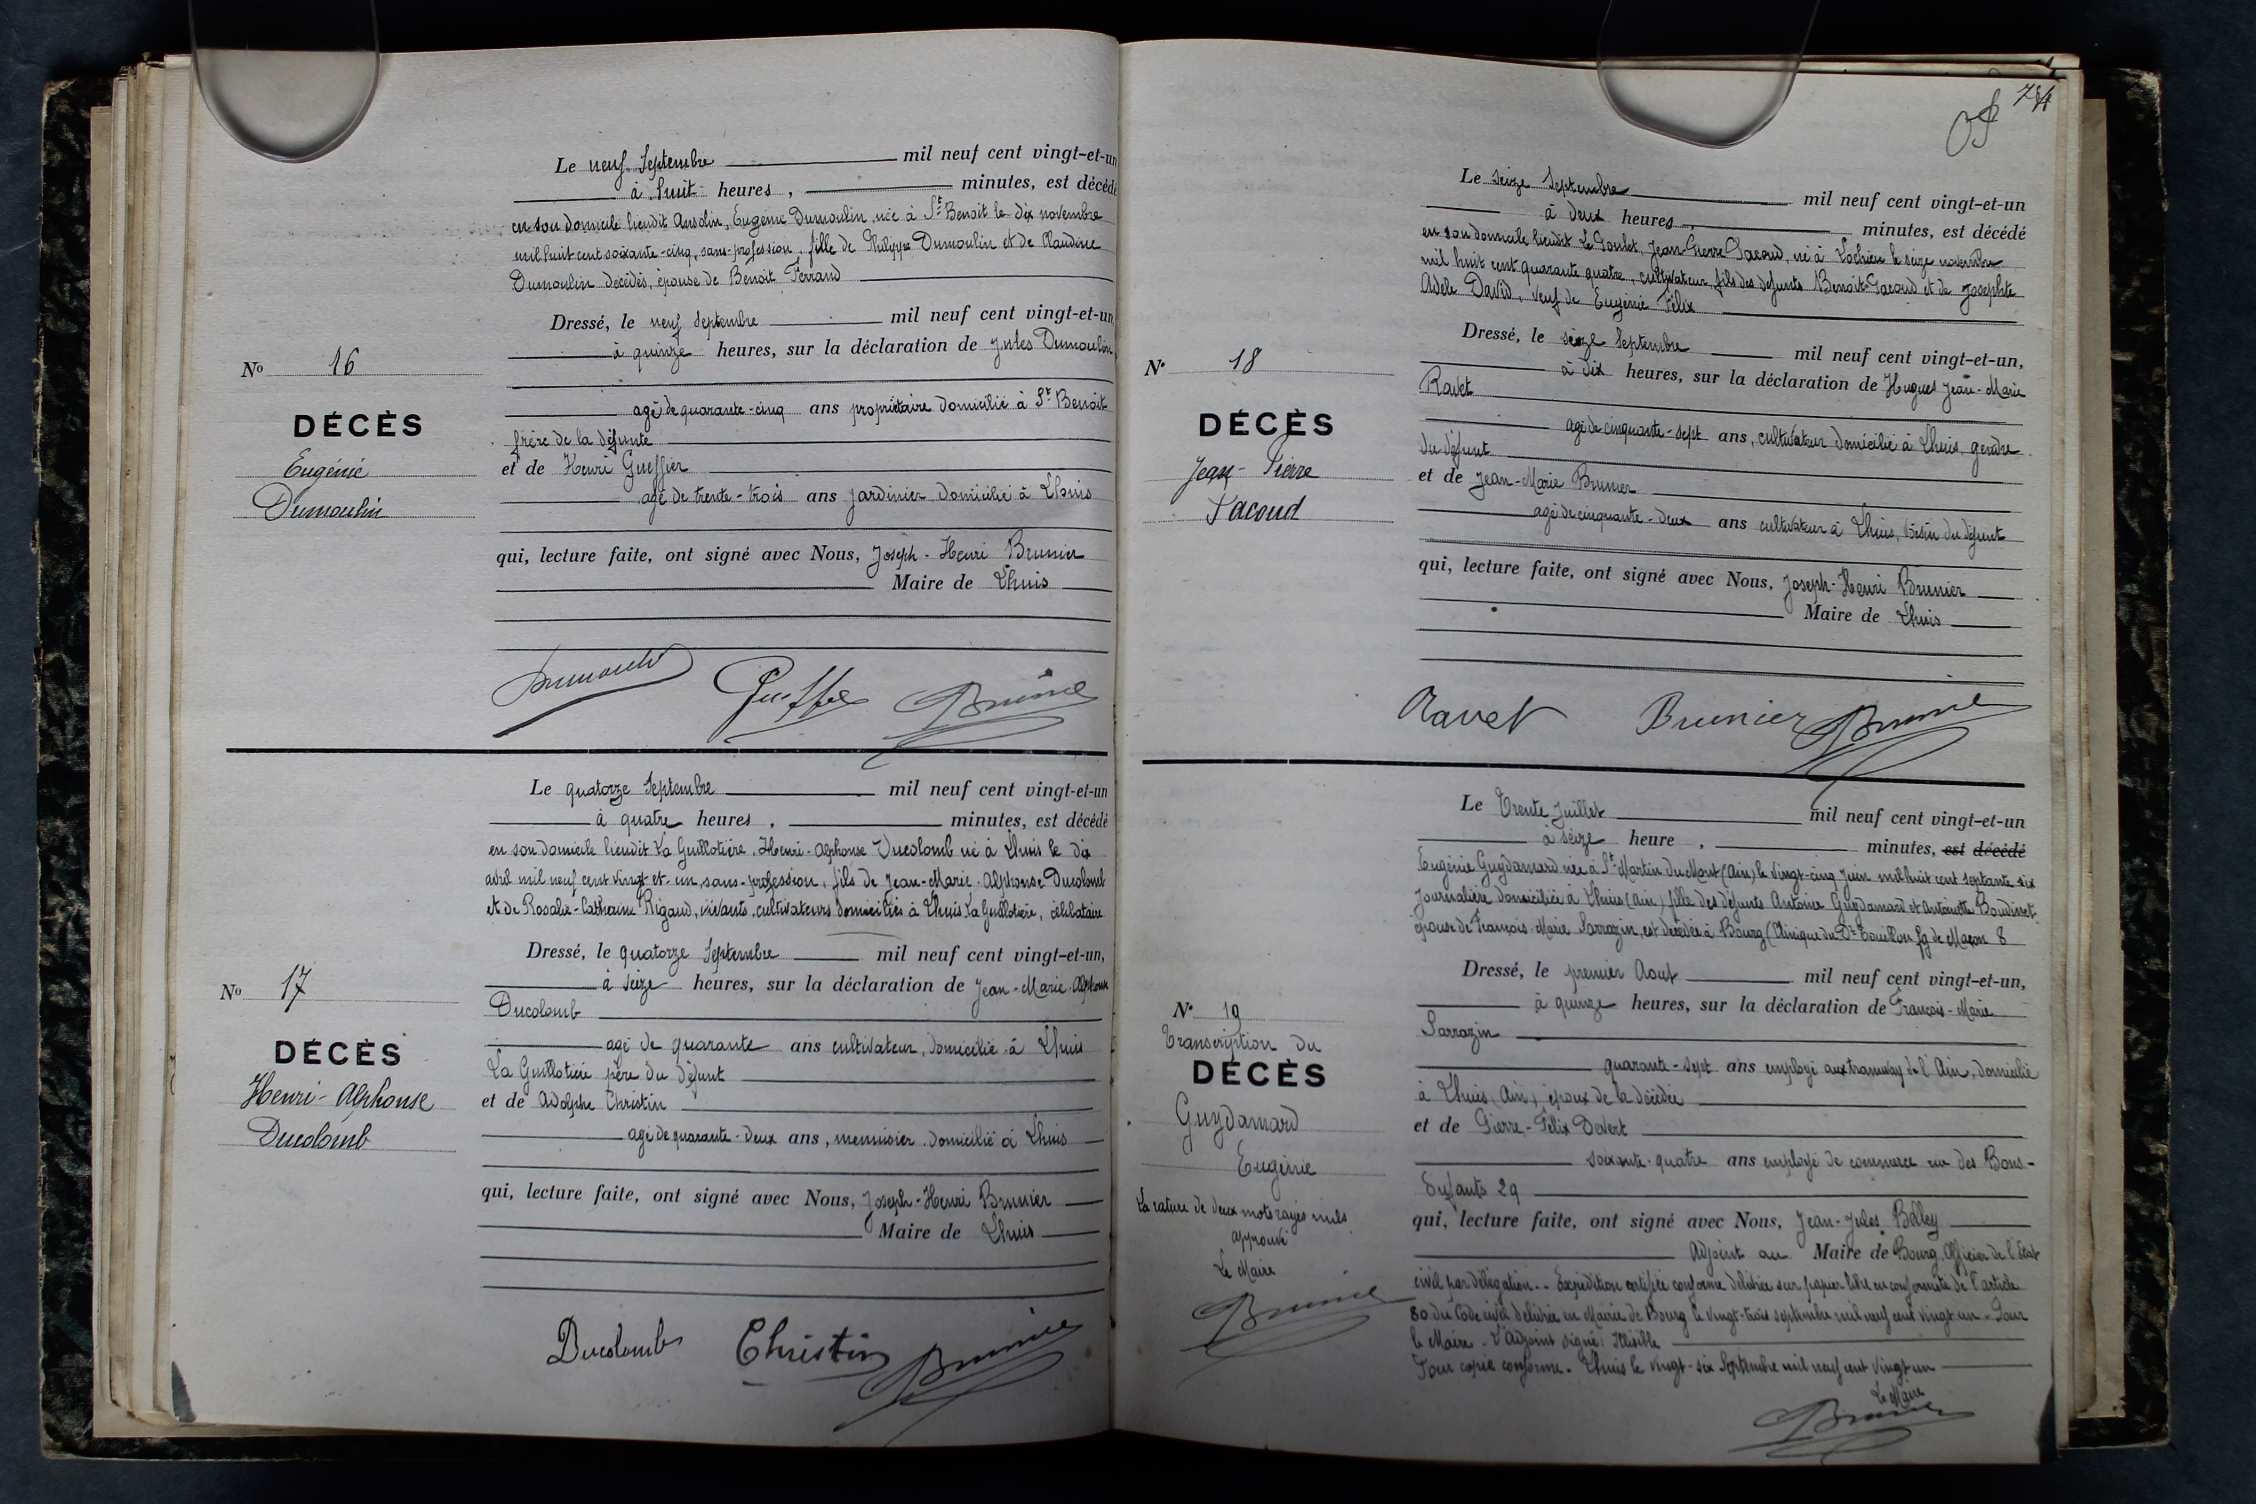 Le neuf Septembre mil neuf cent vingt-et-un
à huit heures, minutes, est décédé
en son domicile lieudit Ansolin, Eugénie Dumoulin, née à St Benoit le dix novembre
mil huit cent soixante-cinq, sans profession, fille de Philippe Dumoulin et de Claudine
Dumoulin décédés, épouse de Benoit Ferrand
Dressé, le neuf Septembre mil neuf cent vingt-et-un,
à quinze heures, sur la déclaration de Jules Dumoulin,
agé de quarante-cinq ans propriétaire domicilié à St Benoit
frère de la défunte
et de Henri Gueffier
agé de trente-trois ans jardinier domicilié à Lhuis
qui, lecture faite, ont signé avec Nous, Joseph-Henri Brunier
Maire de Lhuis
No 16
DÉCÈS
Eugénie
Dumoulin
Dumoulin Brunier
Le quatorze Septembre mil neuf cent vingt-et-un
à quatre heures, minutes, est décédé
en son domicile lieudit La Guillotière, Henri-Alphonse Ducolomb né à Lhuis le dix
avril mil neuf cent vingt-et-un, sans-profession, fils de Jean-Marie-Alphonse Ducolomb
et de Rosalie-Catherine Rigaud, vivants, cultivateurs domiciliés à Lhuis La Guillotière, célibataire
Dressé, le quatorze Septembre mil neuf cent vingt-et-un,
à seize heures, sur la déclaration de Jean-Marie-Alphonse
Ducolomb
agé de quarante ans cultivateur, domicilié à Lhuis
La Guillotière père du défunt
et de Adolphe Christin
agé de quarante-deux ans, menuisier domicilié à Lhuis
qui, lecture faite, ont signé avec Nous, Joseph-Henri Brunier
Maire de Lhuis
No 17
DÉCÈS
Henri-Alphonse
Ducolomb
Ducolomb Christin Brunier
Le seize Septembre mil neuf cent vingt-et-un
à deux heures, minutes, est décédé
en son domicile lieudit Le Goulet, Jean-Pierre Pacoud, né à Lochieu le seize novembre
mil huit cent quarante quatre, cultivateur, fils des defunts Benoit Pacoud et de Josephte
Adèle David, veuf de Eugénie Félix
Dressé, le seize Septembre mil neuf cent vingt-et-un,
à dix heures, sur la déclaration de Hugues Jean-Marie
Ravet
agé de cinquante-sept ans, cultivateur domicilié à Lhuis, gendre
du défunt
et de Jean-Marie Brunier
agé de cinquante-deux ans cultivateur à Lhuis, voisin du défunt
qui, lecture faite, ont signé avec Nous, Joseph-Henri Brunier
Maire de Lhuis
No 18
DÉCÈS
Jean-Pierre
Pacoud
Ravet Brunier Brunier
Le Trente Juillet mil neuf cent vingt-et-un
à seize heure, minutes, est décédé
Eugénie Guydamard née à St Martin du Mont (Ain) le vingt-cinq Juin mil huit cent septante six
Journalière domiciliée à Lhuis (Ain) fille des défunts Antoine Guydamard et Antoinette Boudinet
épouse de François-Marie Sarrazin, est décédée à Bourg (Clinique du Dr Touillon fg de Macon 8
Dressé, le premier Aout mil neuf cent vingt-et-un,
à quinze heures, sur la déclaration de François-Marie
Sarrazin
quarante-sept ans employé aux tramway de l'Ain, domicilié
à Lhuis (Ain), époux de la décédée
et de Pierre-Félix Devert
soixante-quatre ans employé de commerce rue des Bons-
Enfants 29
qui, lecture faite, ont signé avec Nous, Jean-Jules Belley
Adjoint au Maire de Bourg, Officier de l'Etat
civil par délégation.. Expédition certifiée conforme délivrée sur papier libre en conformité de l'article
80 du Code civil délivrée en Mairie de Bourg le vingt-trois septembre mil neuf cent vingt un - Pour
le Maire - L'adjoint signé: Illisible
Pour copie conforme. Lhuis le vingt-six Septembre mil neuf cent vingt un
Le Maire
Brunier
No 19
Transcription du
DÉCÈS
Guydamard
Eugénie
La rature de deux mots rayés nuls
approuvé
Le Maire
Brunier